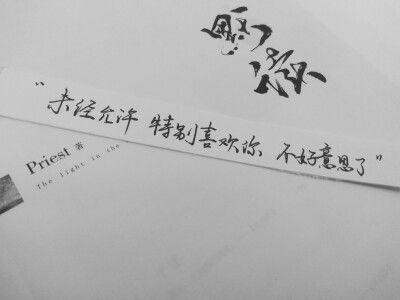 默读
“未经允许 特别喜欢你 不好意思了”
Priest 著
The light in the